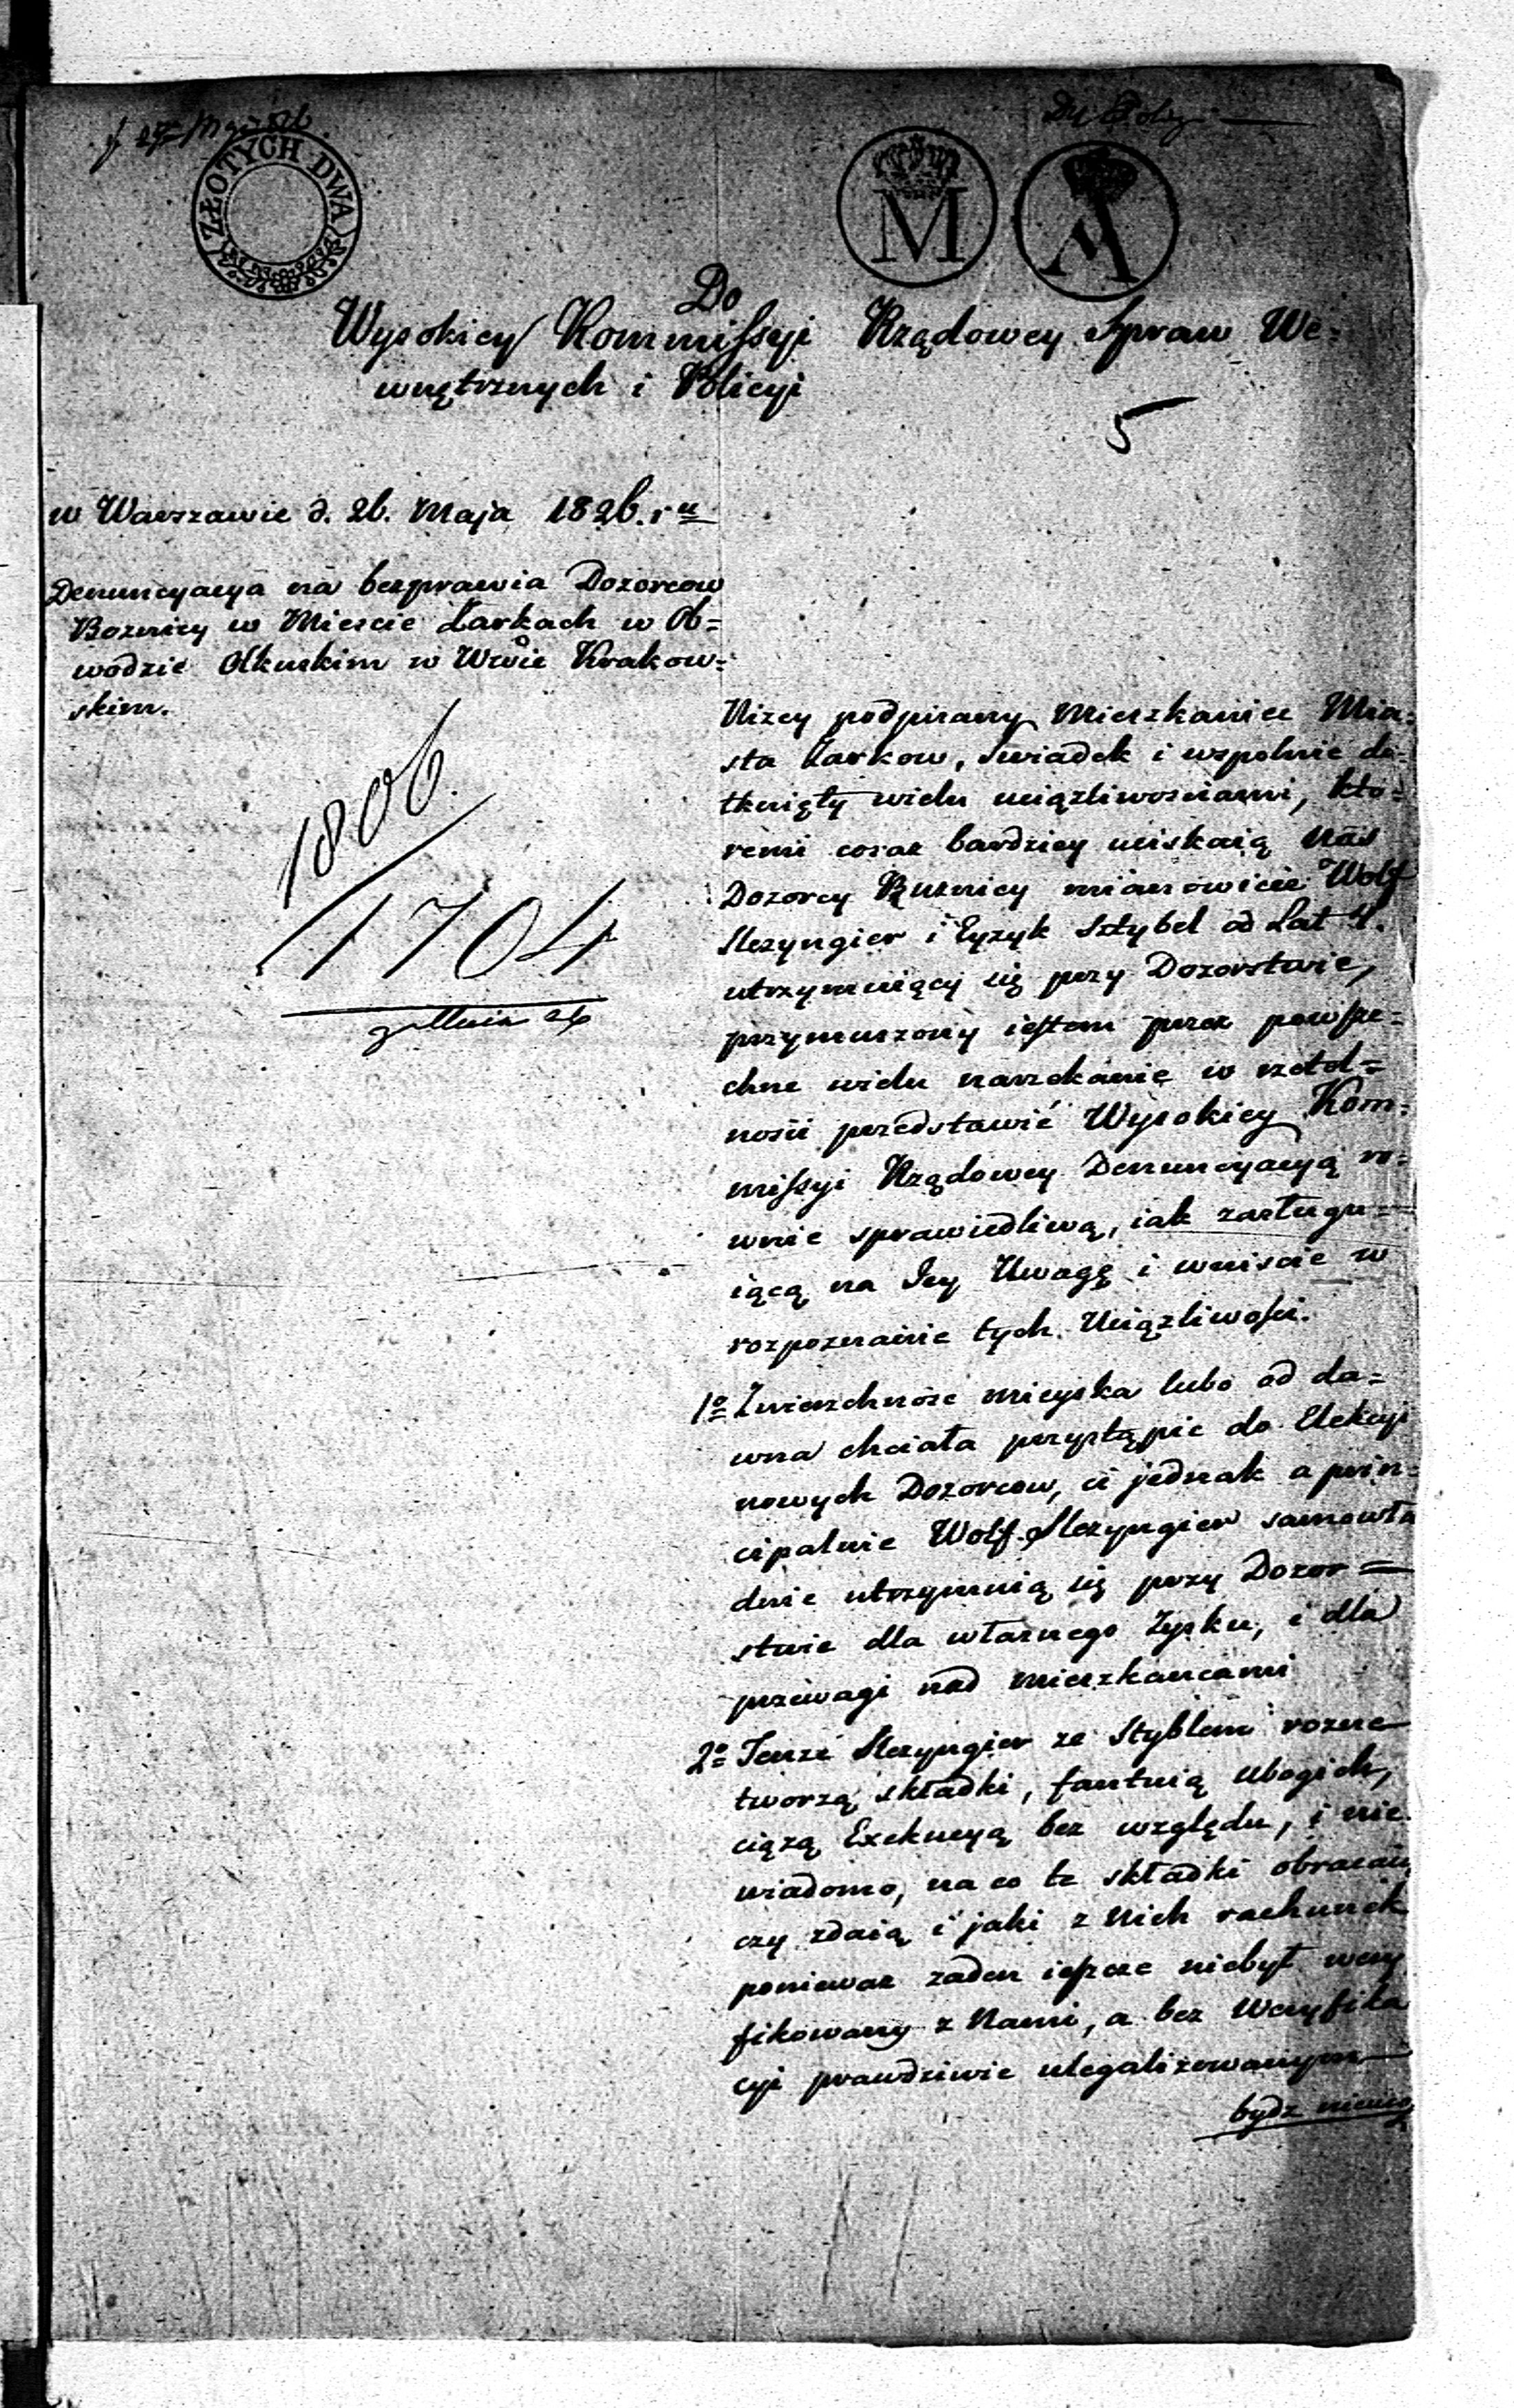 ZŁOTYCH DWA
M
A
Do
Wysokiey Kommissyi Rządowey Spraw We=
wnętrznych i Policyi
5
w Warszawie d. 26. Maja 1826. r u
Denuncyacya na bezprawia Dozorcow
Boznicy w Miescie Żarkach w Ob=
wodzie Olkuskim w Wwie Krakow=
skim.
1806.
1704
Nizey podpisany Mieszkaniec Mia=
sta Żarkow, swiadek i wspolnie do=
tknięty wielu uciążliwosciami, kto=
remi coraz bardziey uciskaią nas
Dozorcy Buznicy mianowicie Wolf
Slezyngier i Eyzyk Sztybel od Lat 4.
utrzymuiący się przy Dozorstwie,
przymuszony iestem przez powsze=
chne wielu narzekanie w
nosci przedstawić Wysokiey Kom=
missyi Rządowey Denuncyacyą ro=
wnie sprawiedliwą, iak zasługu=
iącą na Jey Uwagę i wniscie w
rozpoznanie tych Uciązliwosci.
1o Zwierzchnosc mieyska lubo od da=
wna chciała przystąpic do Elekcyi
nowych Dozorcow, ci jednak a prin=
cipalnie Wolf Slezyngier samowła
dnie utrzymuią się przy Dozor=
stwie dla własnego Zysku, i dla
przewagi nad Mieszkancami
2o Tenze Slezyngier ze Styblem rozne
tworzą składki, fantuią ubogich,
ciążą Exekucyą bez względu, i nie
wiadomo, na co te składki obracaią
czy zdaią i jaki z nich rachunek
poniewaz zaden ieszcze niebył wery
fikowany z Nami, a bez Weryfika
cyi prawdziwie ulegalizowanym
bydz niemo